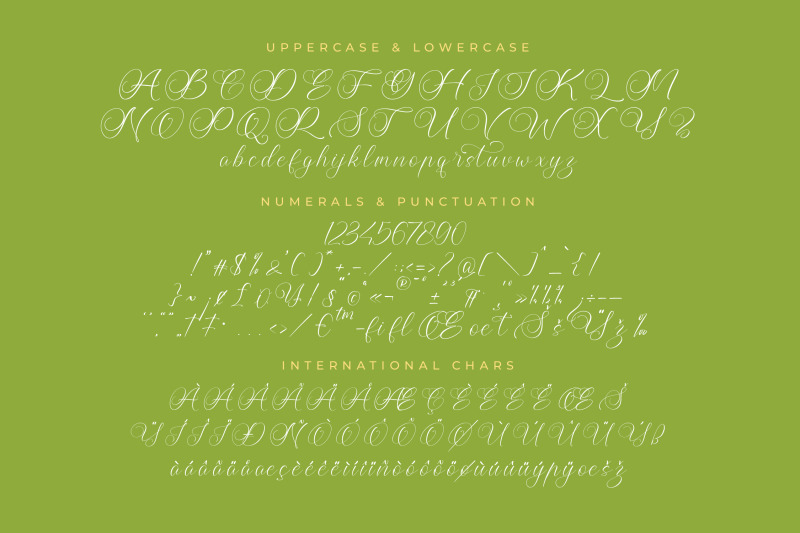 UPPERCASE & LOWERCASE
A B C D E F G H I J K L M
N O P Q R S T U V W X Y Z
a b c d e f g h i j k l m n o p q r s t u v w x y z
NUMERALS & PUNCTUATION
1234567890
! " # $ % & ' ( ) * + , - . / : ; < = > ? @ [ \ ] ^ _ ` { |
} ~ ¡ ¢ £ ¤ ¥ ¦ § ¨ © ª « ¬ ® ¯ ° ± ² ³ ´ µ ¶ · ¸ ¹ º » ¼ ½ ¾ ¿ ÷ – —
‘ ’ ‚ “ ” „ † ‡ • … ‹ › ⁄ € ™ − fi fl Œ œ Š š Ÿ ž ‰
INTERNATIONAL CHARS
À Á Â Ã Ä Å Æ Ç È É Ê Ë Œ Š
Ÿ Ì Í Î Ï Ð Ñ Ò Ó Ô Õ Ö Ø Ù Ú Û Ü Ý ß
à á â ã ä å æ ç è é ê ë ì í î ï ñ ò ó ô õ ö ø ù ú û ü ý þ ÿ œ š ž